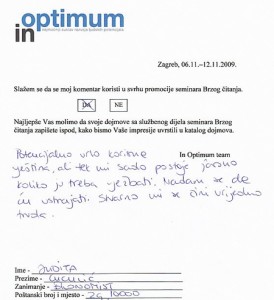 optimum
in
Zagreb, 06.11.–12.11.2009.
Slažem se da se moj komentar koristi u svrhu promocije seminara Brzog čitanja.
DA NE
Najljepše Vas molimo da svoje dojmove sa službenog dijela seminara Brzog
čitanja zapišete ispod, kako bismo Vaše impresije uvrstili u katalog dojmova.
In Optimum team
Potencijalno vrlo korisna
vještina, ali tek mi sada postaje jasno
koliko ju treba vježbati. Nadam se da
ću ustrajati. Stvarno mi se čini vrijedno
truda.
Ime - JUDITA
Prezime -
Zanimanje - EKONOMIST
Poštanski broj i mjesto - ZG, 10000